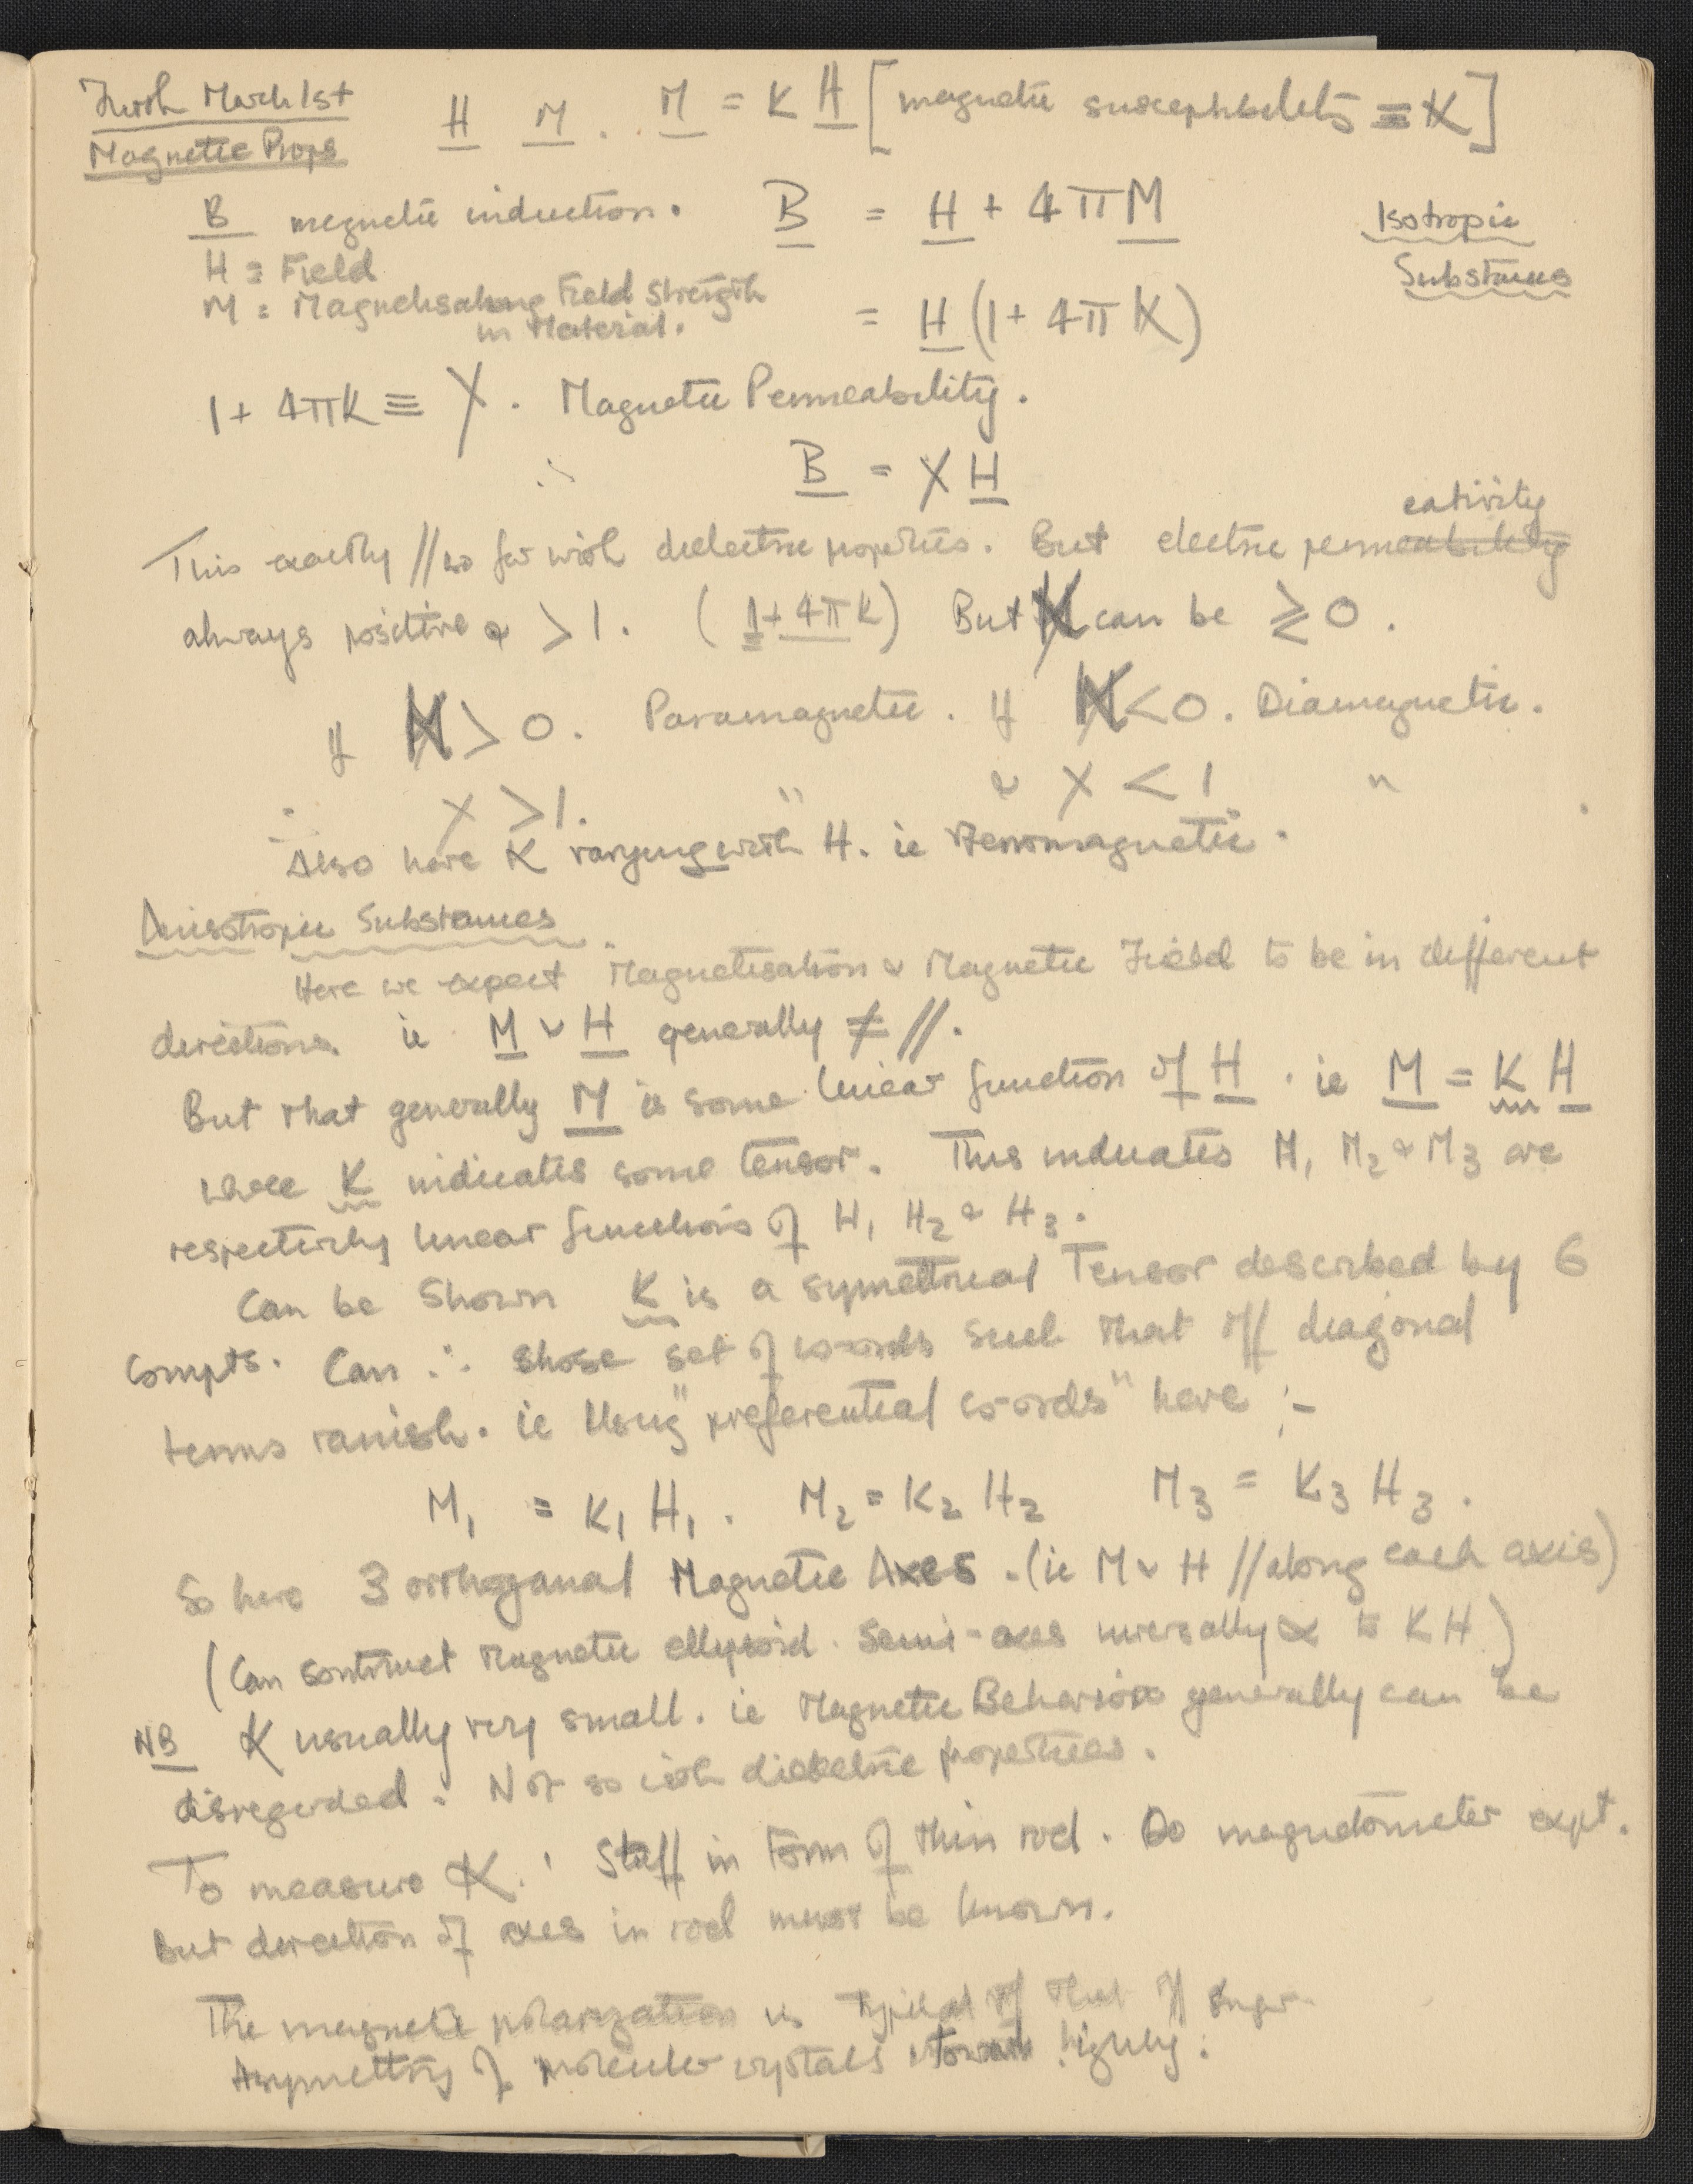 Furth March 1st
Magnetic Props
H M . . M = K H [magnetic susceptibility ≡ K]
B magnetic induction. B = H + 4πM
Isotropic
Substances
H ≡ Field
M = Magnetisation Field Strength
in Material.
= H (1 + 4πK)
1 + 4πK ≡ χ . Magnetic Permeability.
∴ B = χ H
This exactly // so far with dielectric properties. But electric permeability eativity
always positive & > 1. (1 + 4πK) But K can be ≷ 0.
If K > 0. Paramagnetic. If K < 0. Diamagnetic.
∴ χ > 1. " & χ < 1 " .
Also have K varying with H. ie Ferromagnetic.
Anisotropic Substances.
Here we expect Magnetisation & Magnetic Field to be in different
directions. ie M & H generally ≠ //.
But that generally M is some linear function of H. ie M = K H
where K indicates some tensor. This indicates M1 M2 & M3 are
respectively linear functions of H1 H2 & H3.
Can be Shown K is a symettrical Tensor described by 6
compts. Can ∴ chose set of co-ords such that off diagonal
terms vanish. ie Using "preferential co-ords" have :-
M1 = K1 H1. M2 = K2 H2 M3 = K3 H3.
So have 3 orthoganal Magnetic Axes. (ie M & H // along each axis)
(Can construct Magnetic ellipsoid. Semi-axes inversally ∝ to K H)
NB K usually very small. ie Magnetic Behavior generally can be
disregarded. Not so with dielectric properties.
To measure K. Stuff in Form of thin rod. Do magnetometer expt.
But direction of axes in rod must be known.
The magnetic polarization is typical of that of
Asymettry of molecular crystals